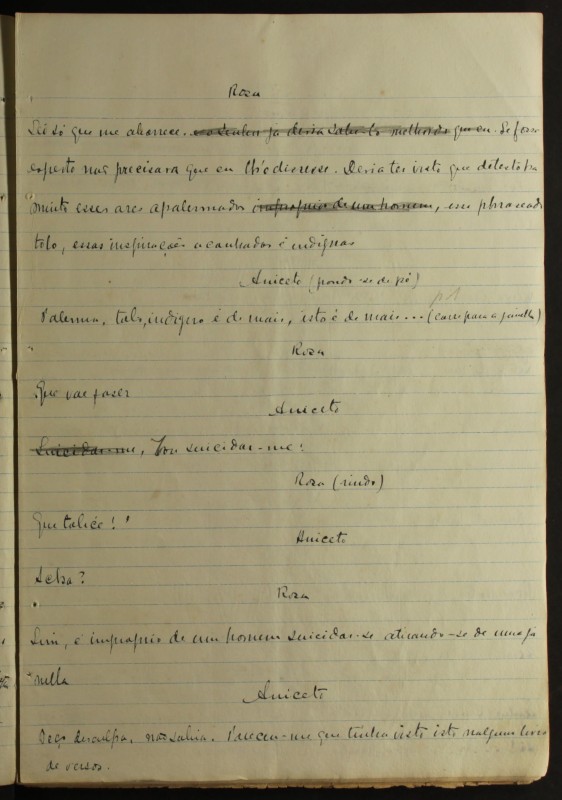 Rosa
Sei só que me aborrece. o senhor já devia sabel-o melhor do que eu. Se fosse
esperto não precisava que eu lh'o dissesse. Devia ter visto que detesto
muito esses ares apalermados improprios de um homem, esse phraseado
tolo, essas inspirações acanhadas e indignas
Aniceto (pondo-se de pé)
Palerma, tolo, indigno é de mais, isto é de mais... (corre para a janella)
Rosa
Que vae fazer
Aniceto
Suicidar-me, Vou suicidar-me!
Rosa (rindo)
Que tolice!!
Aniceto
Acha?
Rosa
Sim, é improprio de um homem suicidar-se atirando-se de uma ja
nella
Aniceto
Peço desculpa, não sabia. Pareceu-me que tinha visto isto nalgum livro
de versos.